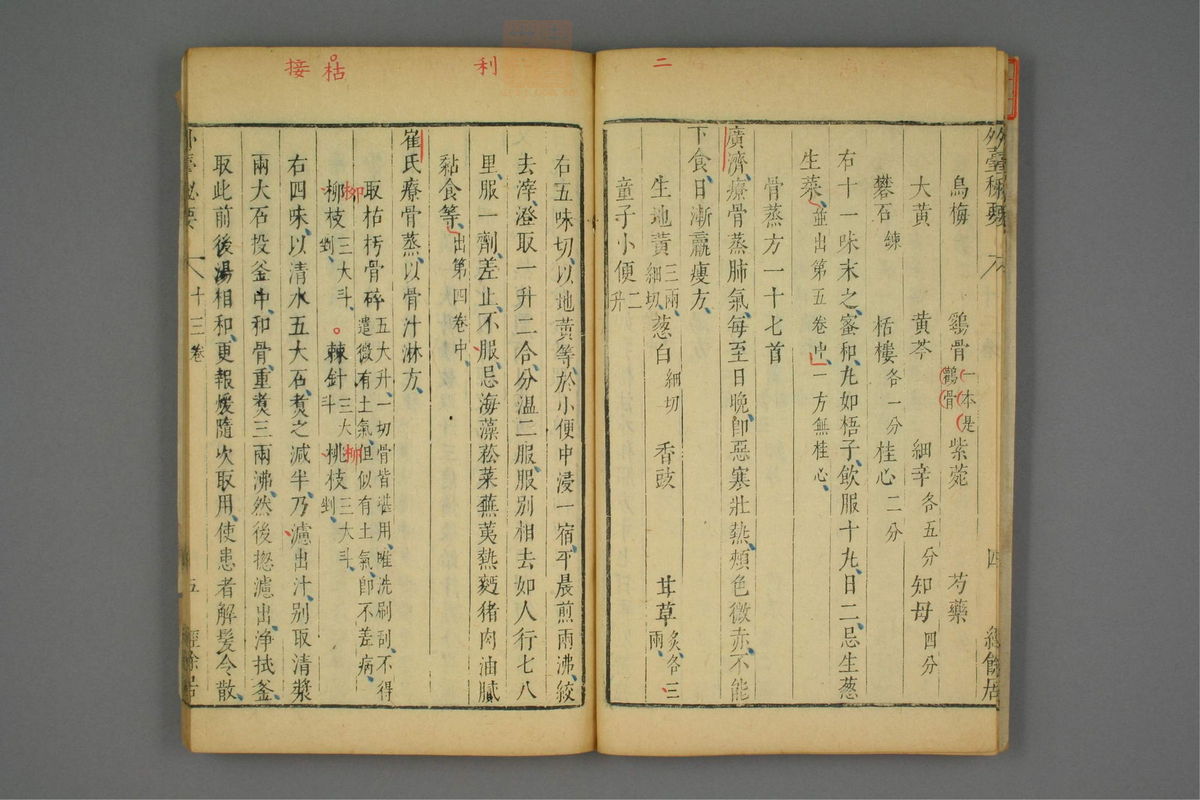 二
外臺秘要
四
經餘居
烏梅 鷄骨 一本是鸛骨 紫菀 芍藥
大黃 黃芩 細辛各五分 知母四分
礬石鍊 栝樓各一分 桂心二分
右十一味末之蜜和丸如梧子飲服十丸日二忌生葱
生菜並出第五卷中一方無桂心
骨蒸方一十七首
廣濟療骨蒸肺氣每至日晚卽惡寒壯熱頰色微赤不能
下食日漸羸瘦方
生地黃三兩細切 葱白細切 香豉 甘草炙各三兩
童子小便二升
利
接枯
右五味切以地黃等於小便中浸一宿平晨煎兩沸絞
去滓澄取一升二合分溫二服服別相去如人行七八
里服一劑差止不服忌海藻菘菜蕪荑熱麪猪肉油膩
黏食等出第四卷中
崔氏療骨蒸以骨汁淋方
取枯朽骨碎五大升一切骨皆堪用唯洗刷刮不得遣微有土氣但似有土氣卽不差病
柳枝三大斗剉 棘針三大斗 桃枝三大斗剉
柳
柳
右四味以清水五大石煑之減半乃濾出汁別取清漿
兩大石投釜中和骨重煑三兩沸然後揔濾出淨拭釜
取此前後湯相和更報煖隨次取用使患者解髮令散
外臺秘要
十三卷
五
經餘居